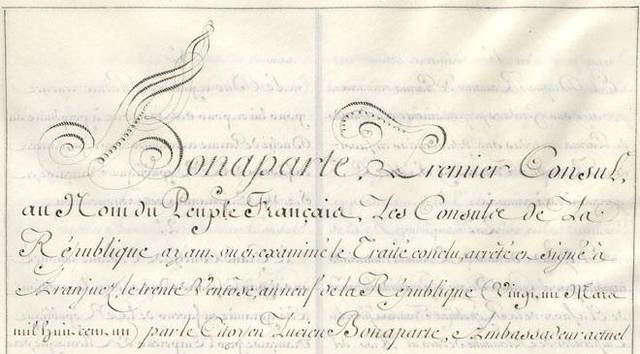 Bonaparte, Premier Consul,
au Nom du Peuple Français, Les Consuls de La
République ayant vu et examiné le Traité conclu, arrêté et signé à
Aranjuez le trente Ventôse, an neuf de la République (Vingt un Mars
mil huit cent un) par le Citoyen Lucien Bonaparte, Ambassadeur actuel